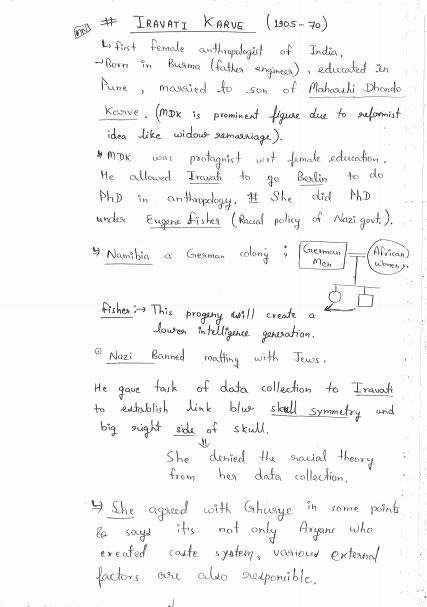 # IRAVATI KARVE (1905-70)
↳ first female anthropologist of India.
→ Born in Burma (father engineer), educated in
Pune, married to son of Maharshi Dhondo
Karve. (MDK is prominent figure due to reformist
idea like widow remarriage).
* MDK was protagnist wrt female education.
He allowed Iravati to go Berlin to do
PhD in anthropology. # She did PhD
under Eugene fisher (Racial policy of Nazi govt.).
↳ Namibia a German colony ;
German Men
African Women.
fisher:→ This progeny will create a
lower intelligence generation.
Nazi Banned matting with Jews.
He gave task of data collection to Iravati
to establish link b/w skull symmetry and
big right side of skull.
⇓
She denied the racial theory
from her data collection.
↳ She agreed with Ghurye in some points
& says it's not only Aryans who
created caste system, various external
factors are also responsible.